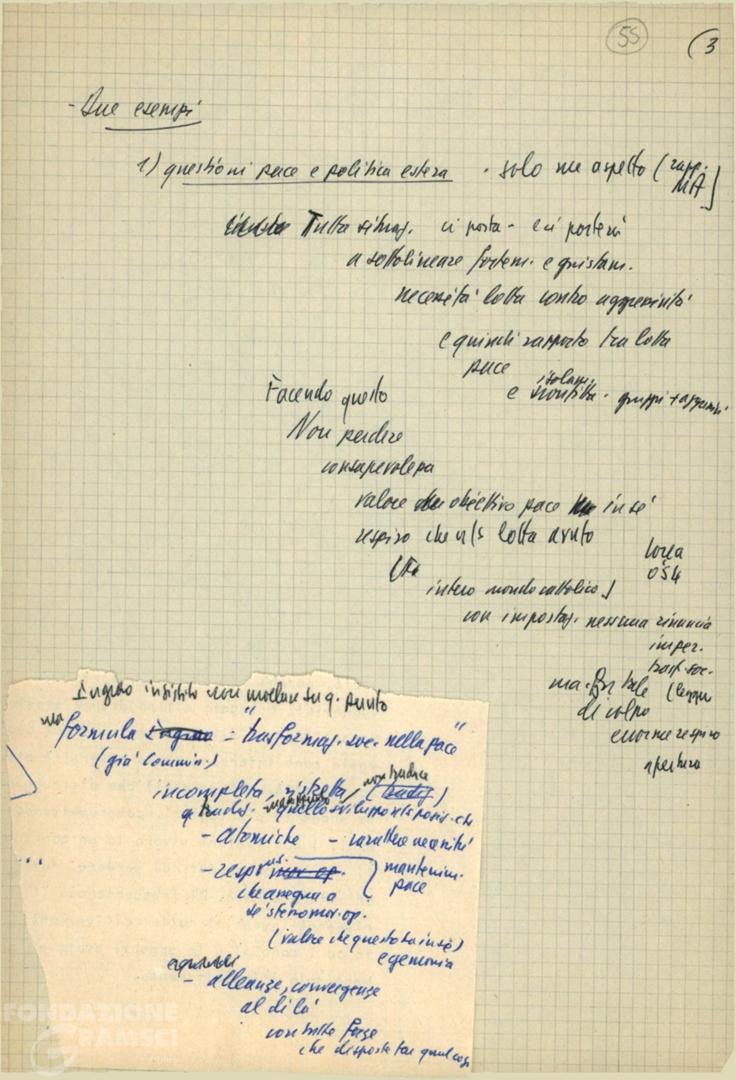 55
(3
- Due esempi
1) questioni pace e politica estera - solo un aspetto (rapp.
MA]
Tutta situaz. ci porta - e ci porterà
a sottolineare fortem. e giustam.
necessità lotta contro aggressività
e quindi rapporto tra lotta
pace
isolam.
e sconfitta - gruppi + aggressivi
Facendo questo
Non perdere
consapevolezza
valore obiettivo pace in sé
respiro che n/s lotta avuto
intero mondo cattolico)
con impostaz. nessuna rinuncia
imper.
trasf. soc.
ma
di colpo
enorme respiro
apertura
Ingrao insistito non mollare su q. punto
ma formula = "trasformaz. soc. nella pace"
(già Commiss.)
incompleta, ristretta
non traduce
quello sviluppo posiz. che
- atomiche - carattere necessità
- respons.
mantenim.
pace
che assegna a
se stesso mov. op.
(valore che questo ha in sé)
egemonia
- alleanze, convergenze
al di là
con tutte forze
che disposte fare qualcosa
FONDAZIONE
GRAMSCI